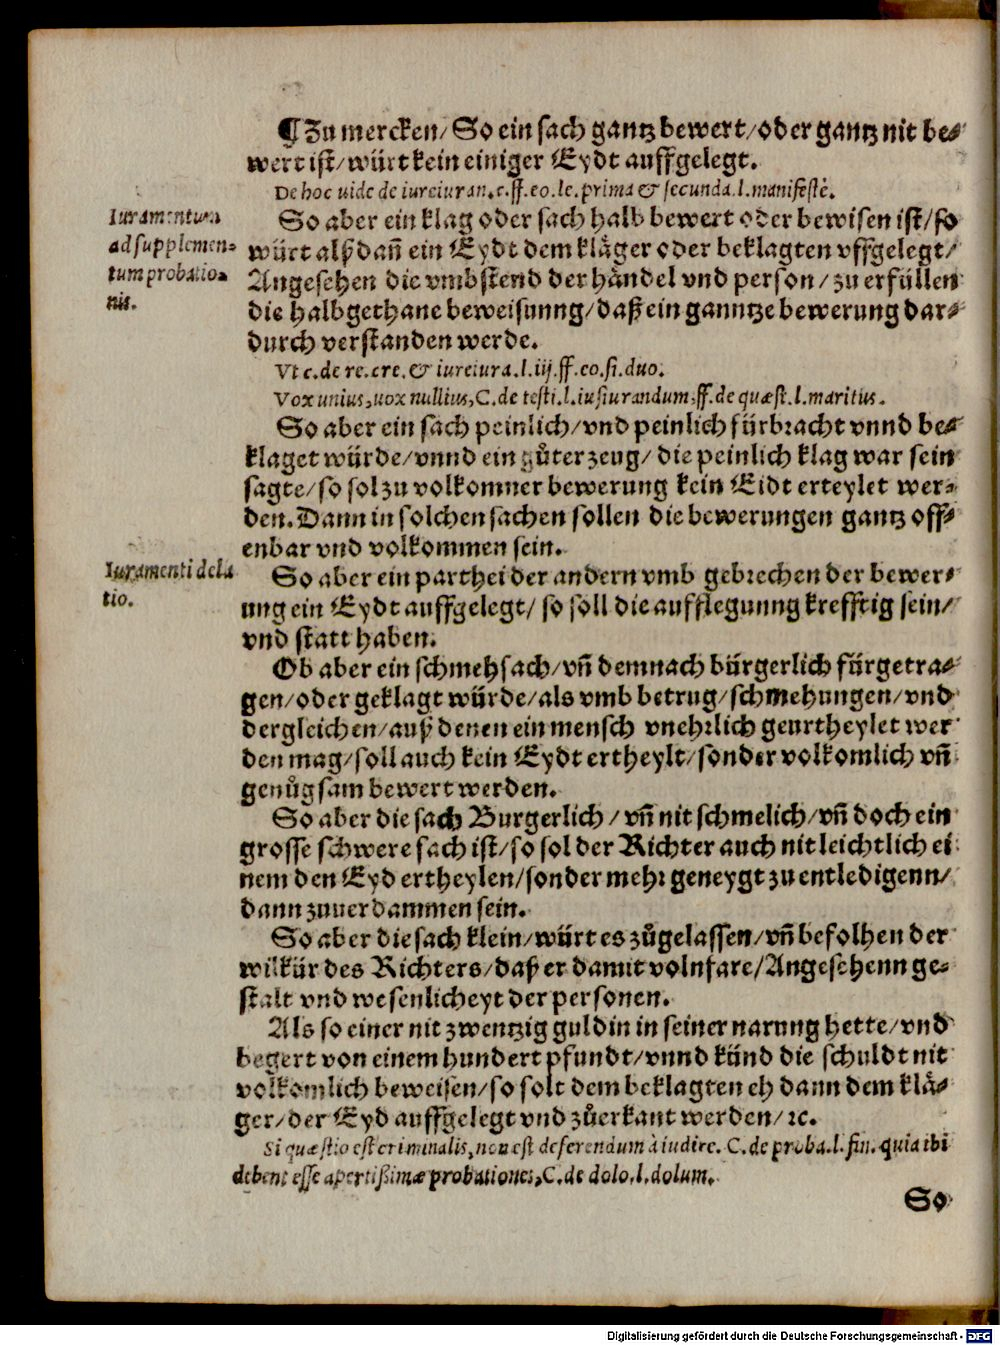 ¶Zu mercken/ So ein sach gantz bewert/oder gantz nit be⸗
wert ist/würt kein einiger Eydt auffgelegt.
De hoc uide de iureiuran.c.ff.eo.le.prima & secunda.l.manifestè.
Iuramentum
ad supplemen⸗
tum probatio⸗
nis.
So aber ein klag oder sach halb bewert oder bewisen ist/so
würt alßdañ ein Eydt dem kläger oder beklagten vffgelegt/
Angesehen die vmbstend der händel vnd person/zu erfüllen
die halbgethane beweisunng/daß ein ganntze bewerung dar⸗
durch verstanden werde.
Vt c.de re.cre.& iureiura.l.iij.ff.eo.si.duo.
Vox unius,uox nullius,C.de testi.l.iusiurandum:ff.de quæst.l.maritus.
So aber ein sach peinlich/vnd peinlich fürbracht vnnd be⸗
klaget würde/vnnd ein gůter zeug/ die peinlich klag war sein
sagte/so sol zu volkomner bewerung kein Eidt erteylet wer⸗
den.Dann in solchen sachen sollen die bewerungen gantz off⸗
enbar vnd volkommen sein.
Iuramenti dela
tio.
So aber ein parthei der andern vmb gebrechen der bewer⸗
ung ein Eydt auffgelegt/ so soll die aufflegunng krefftig sein/
vnd statt haben.
Ob aber ein schmehsach/vñ demnach bürgerlich fürgetra⸗
gen/oder geklagt würde/als vmb betrug/schmehungen/vnd
dergleichen/auß denen ein mensch vnehrlich geurtheylet wer
den mag/soll auch kein Eydt ertheylt/sonder volkomlich vñ
genůgsam bewert werden.
So aber die sach Burgerlich/ vñ nit schmelich/vñ doch ein
grosse schwere sach ist/so sol der Richter auch nit leichtlich ei
nem den Eyd ertheylen/sonder mehr geneygt zu entledigenn/
dann zuuerdammen sein.
So aber die sach klein/würt es zůgelassen/vñ befolhen der
wilkür des Richters/daß er damit volnfare/Angesehenn ge⸗
stalt vnd wesenlicheyt der personen.
Als so einer nit zwentzig guldin in seiner narung hette/vnd
begert von einem hundert pfundt/vnnd künd die schuldt nit
volkomlich beweisen/so solt dem beklagten eh dann dem klä⸗
ger/der Eyd auffgelegt vnd zůerkant werden/ꝛc.
Si quæstio est criminalis,non est deferendum à iudice. C.de proba.l.fin.quia ibi
debent esse apertißimæ probationes,C.de dolo.l.dolum.
So
Digitalisierung gefördert durch die Deutsche Forschungsgemeinschaft - DFG